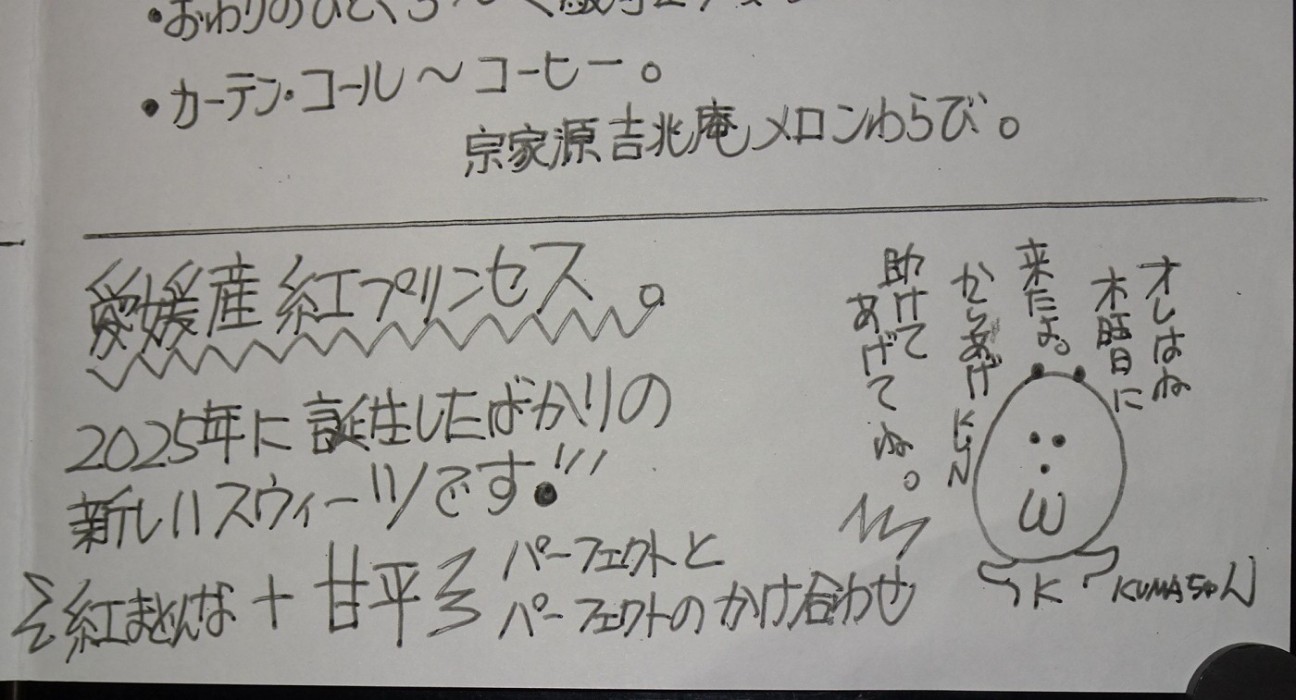 ・おわりのひと
・カーテン・コール～コーヒー。
宗家源吉兆庵メロンわらび。
愛媛産紅プリンセス。
2025年に誕生したばかりの
新しいスウィーツです!!!
紅まどんな+甘平
パーフェクトと
パーフェクトのかけ合わせ
オレはね
木曜日に
来たよ。
からあげKUN
助けて
あげてね。
K
KUMAちゃん